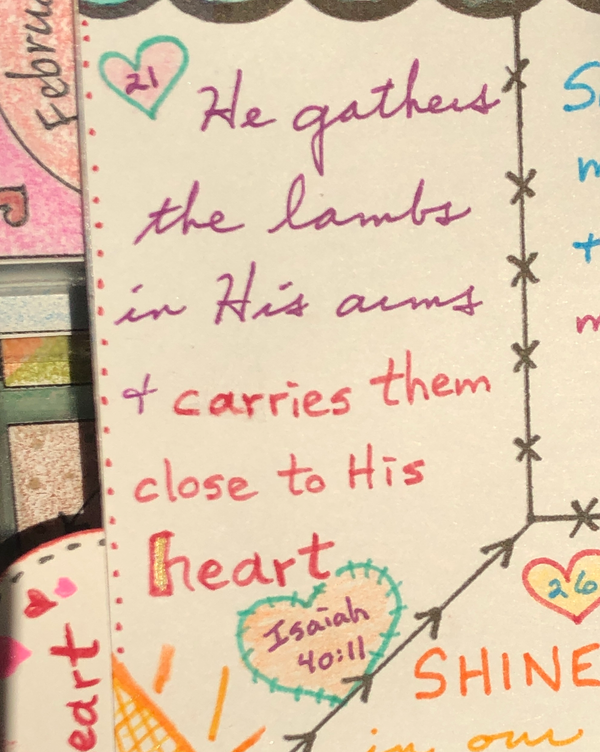 Februa
21
He gathers
the lambs
in His arms
& carries them
close to His
heart
Isaiah
40:11
26
SHINE
in our
eart